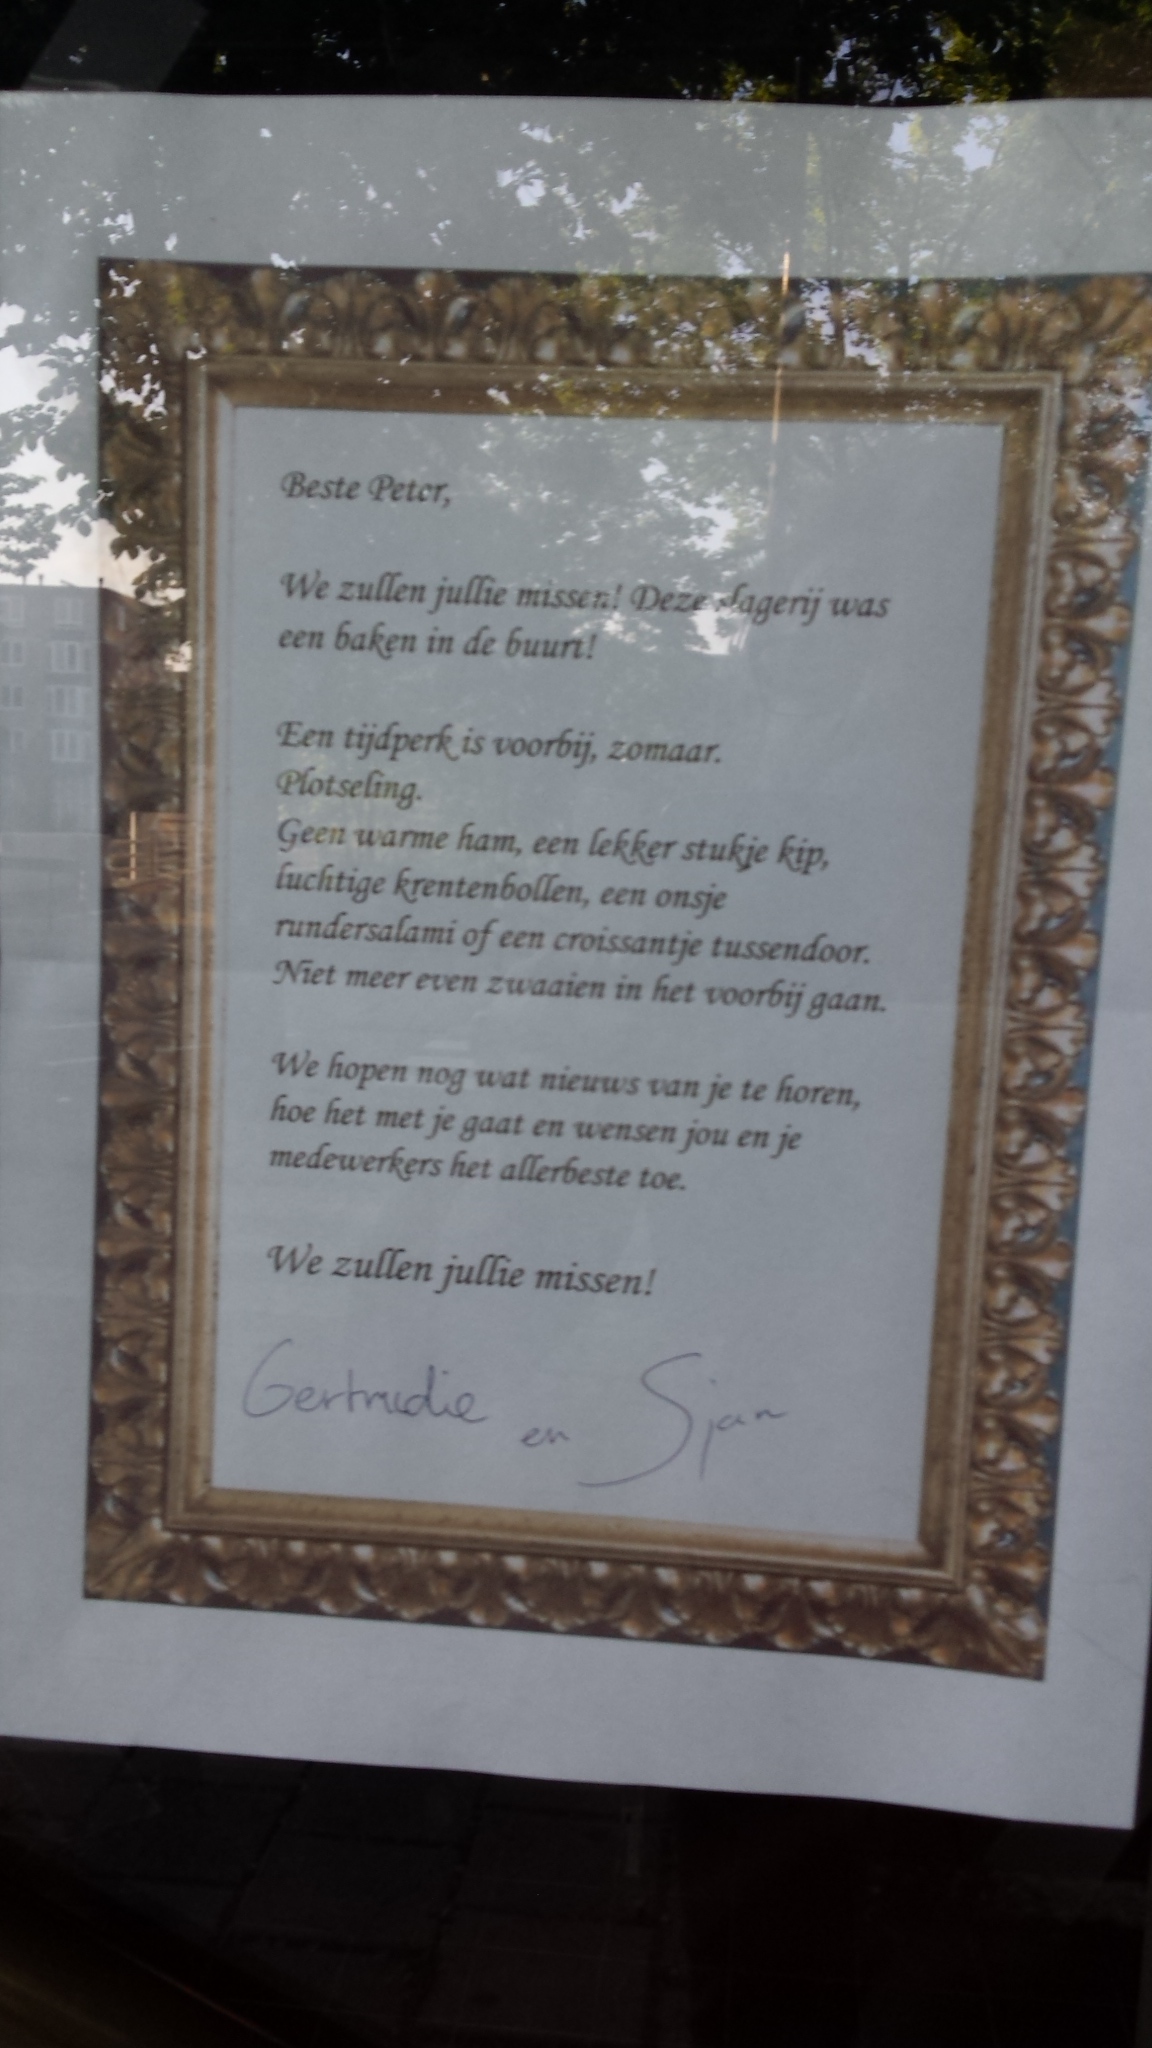 Beste Peter,
We zullen jullie missen! Deze slagerij was
een baken in de buurt!
Een tijdperk is voorbij, zomaar.
Plotseling.
Geen warme ham, een lekker stukje kip,
luchtige krentenbollen, een onsje
rundersalami of een croissantje tussendoor.
Niet meer even zwaaien in het voorbij gaan.
We hopen nog wat nieuws van je te horen,
hoe het met je gaat en wensen jou en je
medewerkers het allerbeste toe.
We zullen jullie missen!
Gertrudie en Sjan